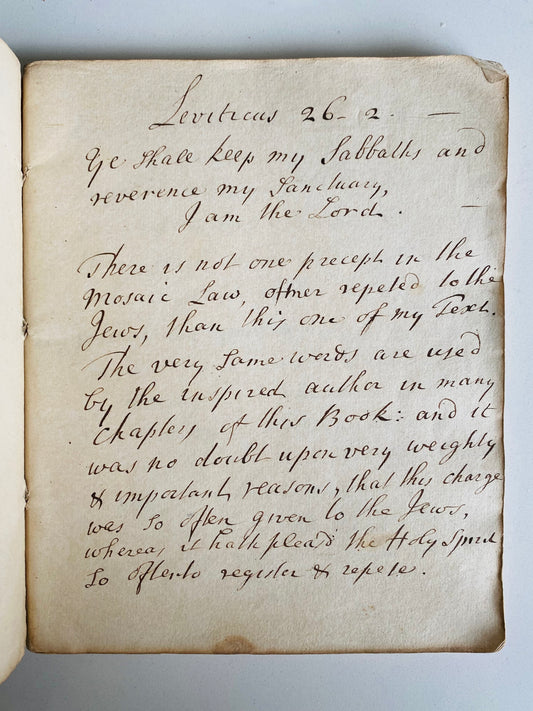 Leviticus 26-2. —
Ye shall keep my Sabbaths and
reverence my Sanctuary,
I am the Lord. —
There is not one precept in the
Mosaic Law, ofner repeted to the
Jews, than this one of my Text.
The very same words are used
by the inspired author in many
Chapters of this Book: and it
was no doubt upon very weighly
& important, reasons, that this charge
was so often given to the Jews,
whereas it hath pleas'd the Holy Spirit
So often to register & repete.